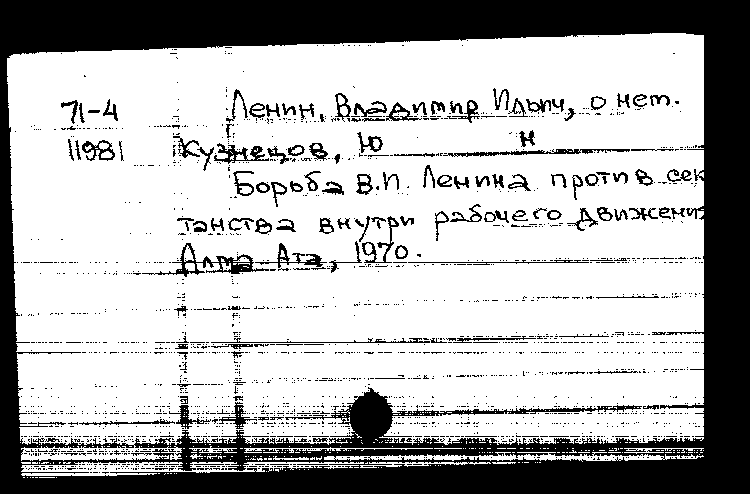 71-4 Ленин, Владимир Ильич, о нем.
11981 Кузнецов, Ю Н
Борьба В.И. Ленина против сек
танства внутри рабочего движения
Алма-Ата, 1970.